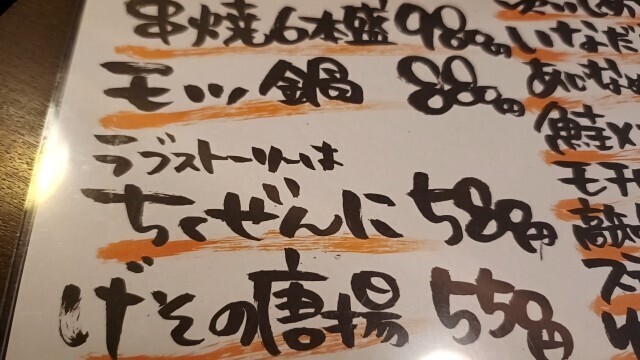 串焼6本盛 980円
モツ鍋 880円
ラブストーリーは
ちくぜんに 580円
げその唐揚 550円
いなだ
あじなめ
鮭×
モチ